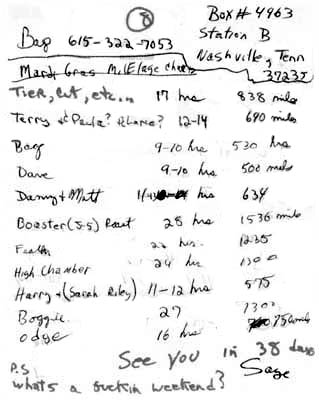 8
Box # 4963
Bag 615-322-7053
Station B
Nashville, Tenn
37235
Mardi Gras Milage chart
Tier, Cut, etc... 17 hrs 838 miles
Terry & Paula? & Lorne? 12-14 690 miles
Bag 9-10 hrs 530 hrs
Dave 9-10 hrs 500 miles
Danny & Matt hrs 634
Boaster (J-5) Root 28 hrs 1536 miles
hrs. 1235
High Chamber 24 hrs 1300
Harry & (Sarah Riley) 11-12 hrs 575
Boggie 27 1300
odge 16 hrs 750 miles
See you in 38 days
Sage
P.S
whats a fuckin weekend?